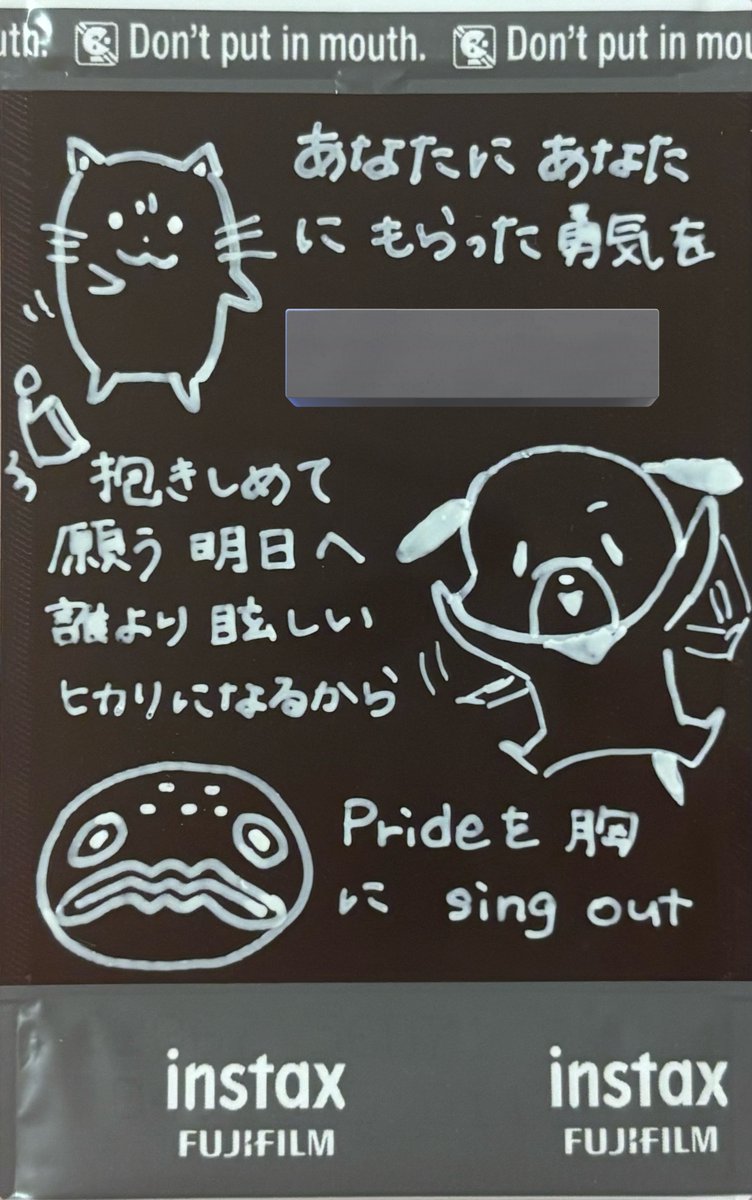 uth. Don't put in mouth. Don't put in mou
あなたに あなた
に もらった 勇気を
抱きしめて
願う 明日へ
誰より 眩しい
ヒカリになるから
Prideを 胸
に sing out
instax instax
FUJIFILM FUJIFILM